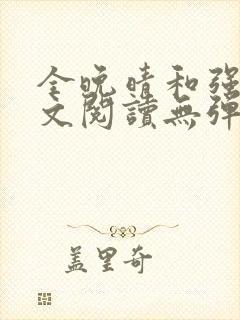 全晚晴和强
文阅读無弹
盖里奇